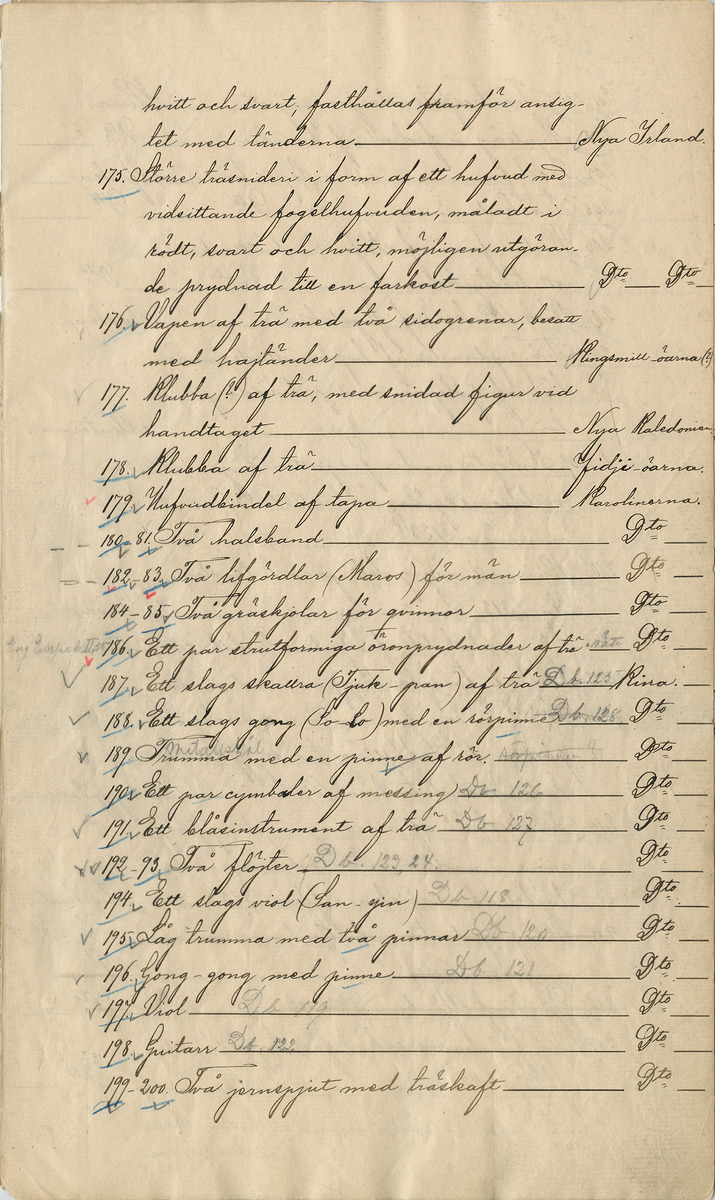 hvitt och svart; fasthållas framför ansig-
tet med tänderna Nya Irland.
175. Större träsnideri i form af ett hufvud med
vidsittande fogelhufvuden, måladt i
rödt, svart och hvitt, möjligen utgöran-
de prydnad till en farkost Dto Dto
176. Vapen af trä med två sidogrenar, besatt
med hajtänder Kingsmill-öarna (?)
177. Klubba (?) af trä, med snidad figur vid
handtaget Nya Kaledonien
178. Klubba af trä Fidji-öarna.
179. Hufvudbindel af tapa Karolinerna.
180-81. Två halsband Dto
182-83. Två lifgördlar (Maros) för män Dto
184-85. Två gräskjolar för qvinnor Dto
186. Ett par strutformiga öronprydnader af trä Dto
187. Ett slags skallra (Tjuk-pan) af trä Db. 125 Kina.
188. Ett slags gong (Lo-Lo) med en rörpinne Db. 128 Dto
189 Trumma med en pinne af rör. Dto
190. Ett par cymbaler af messing Db 126 Dto
191. Ett blåsinstrument af trä Db 127 Dto
192-93. Två flöjter Db. 123, 24. Dto
194. Ett slags viol (San-yin) Db 118 Dto
195. Låg trumma med två pinnar Db 120 Dto
196. Gong-gong med pinne Db. 121 Dto
197. Viol Db 119 Dto
198. Guitarr Db. 122 Dto
199-200. Två jernspjut med träskaft Dto